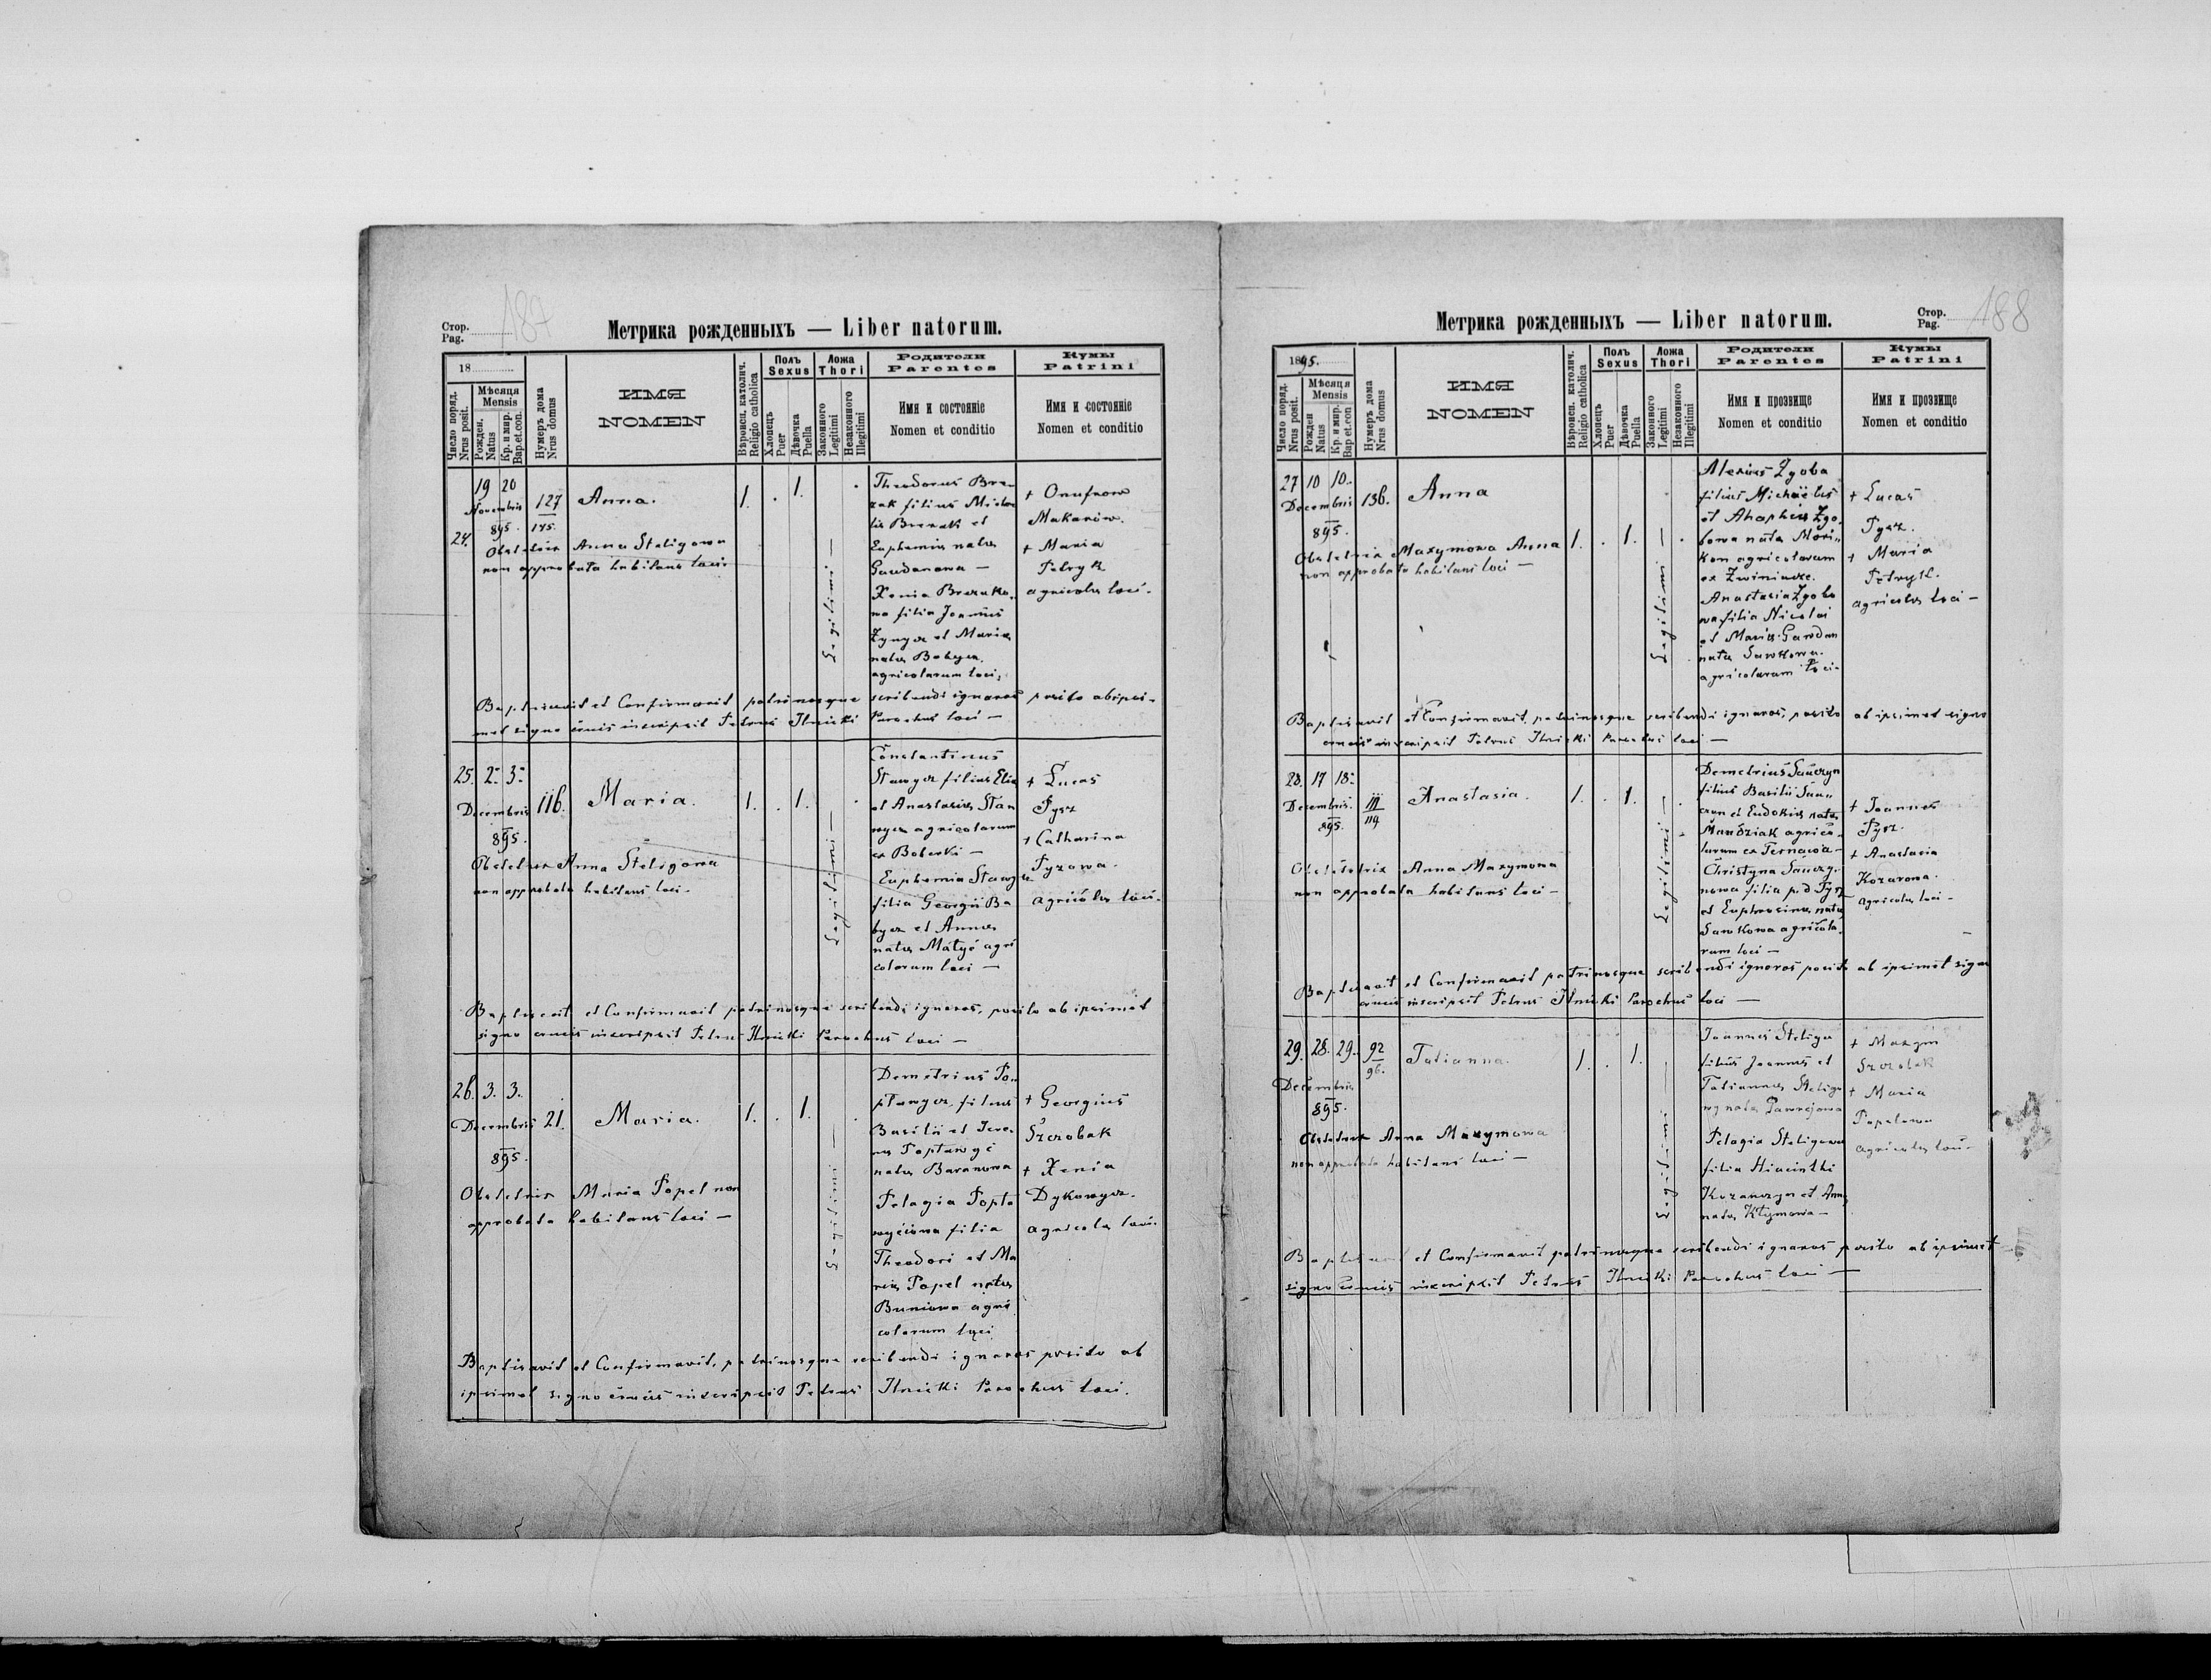 Стор.
Pag.
187
Метрика рожденныхъ — Liber natorum.
18
Число поряд.
Nrus posit.
Мѣсяця
Mensis
Рожден.
Natus
Кр. и мир.
Bap.et.con.
Нумеръ дома
Nrus domus
ИМЯ
NOMEN
Вѣроисп. католич.
Religio catholica
Полъ
Sexus
Хлопецъ
Puer
Дѣвочка
Puella
Ложа
Thori
Законного
Legitimi
Незаконного
Illegitimi
Родители
Parentes
Имя и состояніе
Nomen et conditio
Кумы
Patrini
Имя и состояніе
Nomen et conditio
24.
19 20
Novembris
895.
127
145.
Anna.
1. . 1.
Legitimi —
Obstetrix Anna Steligowa
non approbata habitans loci
Theodorus
filius
et
Euphemia natae
—
Xenia
filia Joannis
et Mariae
natae
agricolarum loci,
+ Onufrow
Makarów.
+ Maria
Petryk
agricolae loci.
Baptisavit et Confirmavit patrinosque scribendi ignaros posito ab ipsi-
met signo crucis inscripsit Petrus Ilnicki Parochus loci —
25. 2. 3.
Decembris
895.
116.
Maria.
1. . 1.
Legitimi —
Obstetrix Anna Steligowa
non approbata habitans loci.
Constantinus
filius Eliae
et Anastasiae
agricolarum
ex —
Euphemia
filia Georgii Ba
et Annae
natae Matyé agri
colarum loci —
+ Lucas
Pysz
+ Catharina
Pyzowa.
agricolae loci.
Baptisavit et Confirmavit patrinosque scribendi ignaros, posito ab ipsimet
signo crucis inscripsit Petrus Ilnicki Parochus loci —
26. 3. 3.
Decembris
895.
21.
Maria.
1. . 1.
Legitimi —
Obstetrix Maria Popel non
approbata habitans loci —
Demetrius Po
filius
Basilii et
natae Baranowa
Pelagia Popta
filia
Theodori et Ma
riae Popel natae
Buniowa agri
colarum loci
+ Georgius
Szczobak
+ Xenia
Dykowycz.
agricolae loci.
Baptisavit et Confirmavit, patrinosque scribendi ignaros posito ab
ipsimet signo crucis inscripsit Petrus Ilnicki Parochus loci.
Метрика рожденныхъ — Liber natorum.
Стор.
Pag.
188
1895.
Число поряд.
Nrus posit.
Мѣсяця
Mensis
Рожден
Natus
Кр. и мир.
Bap et.con
Нумеръ дома
Nrus domus
ИМЯ
NOMEN
Вѣроисп. католич.
Religio catholica
Полъ
Sexus
Хлопецъ
Puer
Дѣвочка
Puella
Ложа
Thori
Законного
Legitimi
Незаконного
Illegitimi
Родители
Parentes
Имя и прозвище
Nomen et conditio
Кумы
Patrini
Имя и прозвище
Nomen et conditio
27 10 10.
Decembris
895.
136.
Anna
1. . 1.
Legitimi —
Obstetrix Maxymowa Anna
non approbata habitans loci —
Alexius Zgoba
filius Michaëlis
et Zgo
bowa nata
agricolarum
ex
Anastasia Zgobo
wa filia Nicolai
et Mariae Gawdan
natae Sawkowa.
agricolarum loci.
+ Lucas
Pysz.
+ Maria
Petryk.
agricolae loci —
Baptisavit et Confirmavit patrinosque scribendi ignaros, posito ab ipsimet signo
crucis inscripsit Petrus Ilnicki Parochus loci —
28. 17 18.
Decembris.
895.
111
114
Anastasia.
1. . 1.
Legitimi —
Obstetrix Anna Maxymowa
non approbata habitans loci —
Demetrius
filius Basilii
et Eudokiae natae
agrico
larum ex
Christyna
nowa filia
et Euphrosinae natae
Sawkowa agricola
rum loci —
+ Joannes
Pysz.
+ Anastasia
Kozarowa.
agricolae loci —
Baptisavit et Confirmavit patrinosque scribendi ignaros posito ab ipsimet signo
crucis inscripsit Petrus Ilnicki Parochus loci —
29. 28. 29.
Decembris
895.
92
96.
Tatianna.
1. . 1.
Legitimi —
Obstetrix Anna Maxymowa
non approbata habitans loci —
Joannes Steliga
filius Joannis et
Tatiannae Steligo
wy nata
Pelagia Steligowa
filia Hiacinthi
et Annae
natae Klymowa —
+ Maxym
+ Maria
Popelowa
agricolae loci.
Baptisavit et Confirmavit patrinosque scribendi ignaros posito ab ipsimet
signo crucis inscripsit Petrus Ilnicki Parochus loci —